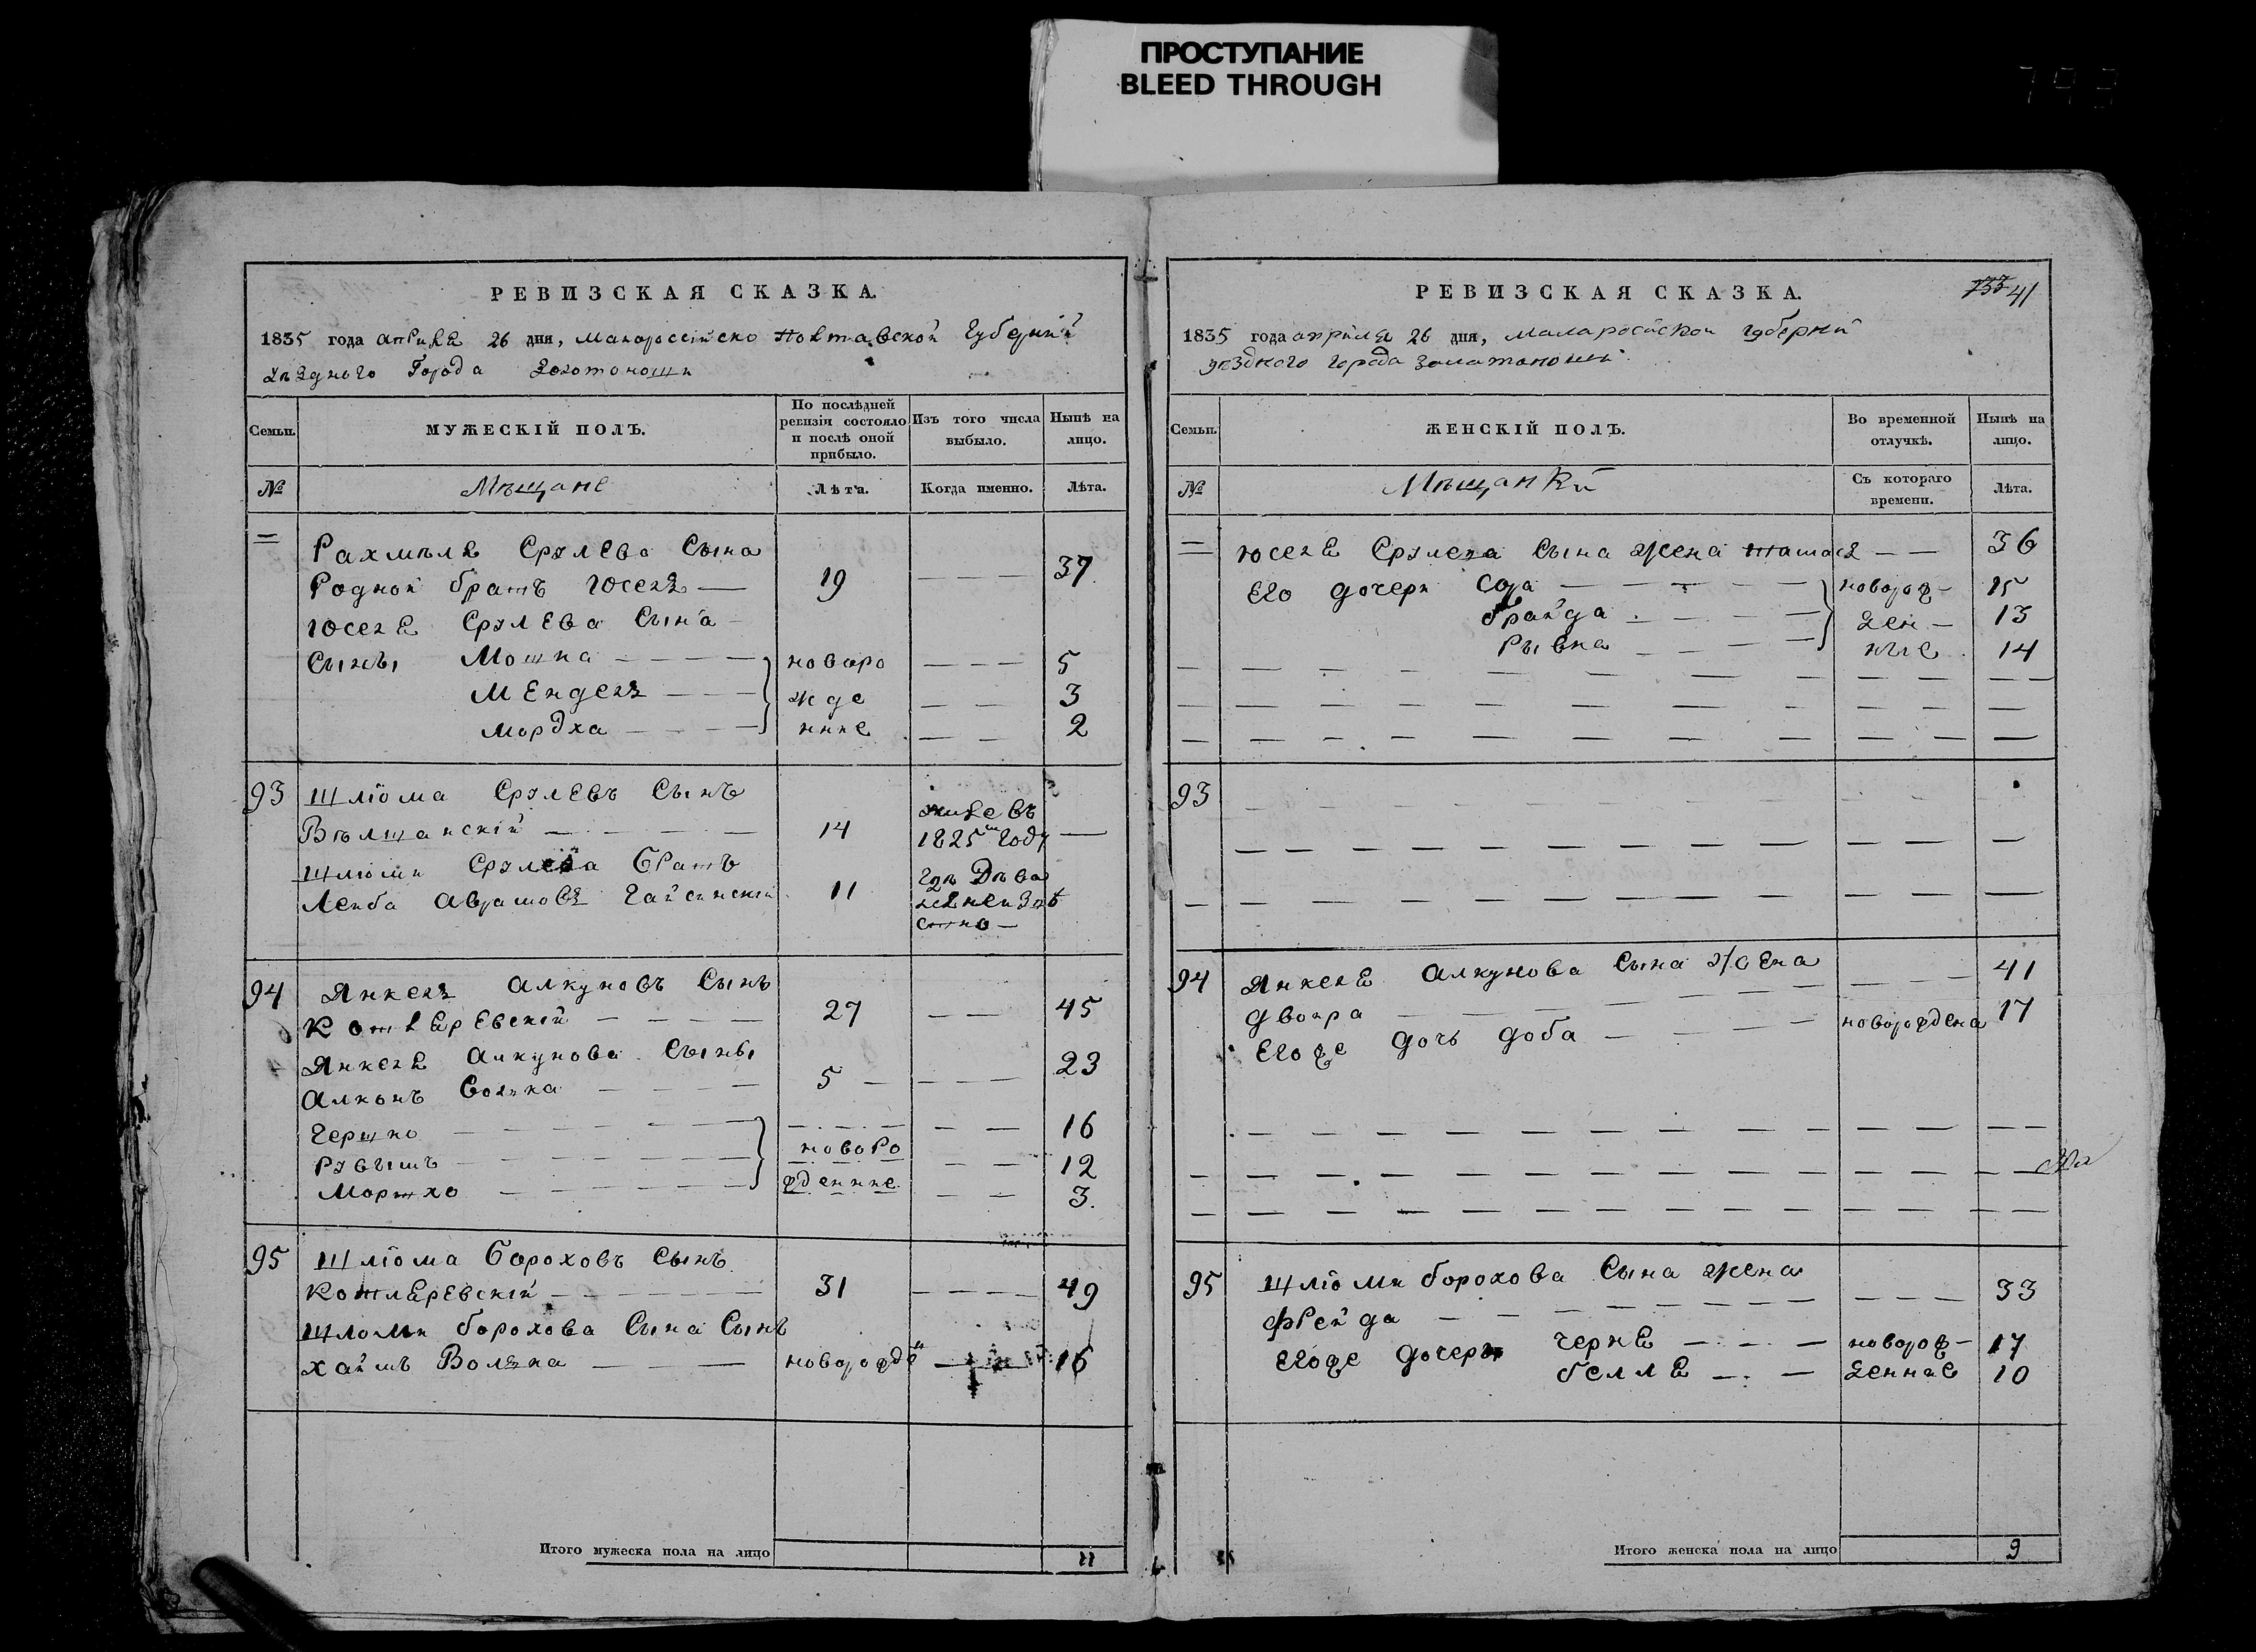 ПРОСТУПАНИЕ
BLEED THROUGH
РЕВИЗСКАЯ СКАЗКА.
1835 года апреля 26 дня, Малороссійско Полтавской Губерніи
Уѣздного Города Золотоноши
Семьи.
МУЖЕСКІЙ ПОЛЪ.
По послѣдней ревизіи состояло и послѣ оной прибыло.
Изъ того числа выбыло.
Нынѣ на лицо.
№
Мѣщане
Лѣта.
Когда именно.
Лѣта.
Рахмѣля Срулева Сына
Родной братъ Юсель — 19 — — — 37
Юселя Срулева Сына
Сыны Мошка — — — — новоро — — — 5
Мендель — — — жде — — 3
Мордха — — — — нные — — 2
93 Шліома Срулевъ Сынъ
Вѣлшанскій — — — — 14
1825 году —
Шліоми Срулева Братъ
Лейба Аврамовъ Гайсинскій 11
94 Янкель Алкуновъ Сынъ
Котляревскій — — — — 27 — — 45
Янкеля Алкунова Сыны 23
Алконъ Волька — — — 5 — — — —
Гершко — — — — — — — — 16
новоро
Рувымъ — — — — — — — 12
жденные
Мортхо — — — — — — — 3.
95 Шліома Бороховъ Сынъ
Котляревскій — — — — — 31 — — — — 49
Шломи борохова Сына Сынъ
хаймъ Волька — — — новорожде 16
Итого мужеска пола на лицо 11
РЕВИЗСКАЯ СКАЗКА.
41
1835 года апрѣля 26 дня, маларосійской губерніи
уѣздного города залатоноши
Семьи.
ЖЕНСКІЙ ПОЛЪ.
Во временной отлучкѣ.
Нынѣ на лицо.
№
Мѣщанки
Съ котораго времени.
Лѣта.
Юселя Срулева Сына жена — — 36
Его дочери Сора — — — — — новорож— 15
Фрайда — — — — ден— 13
Рывка — — — — ныe 14
93
94 Янкеля Алкунова Сына Жена — — — 41
Двойра — — — — — —
Егоже дочь доба — — — — новорождена 17
95 Шліоми борохова Сына жена
фрейда — — — — — — — — — — — 33
Егоже дочери Черня — — — новорож— 17
белля — — — денные 10
Итого женска пола на лицо 9